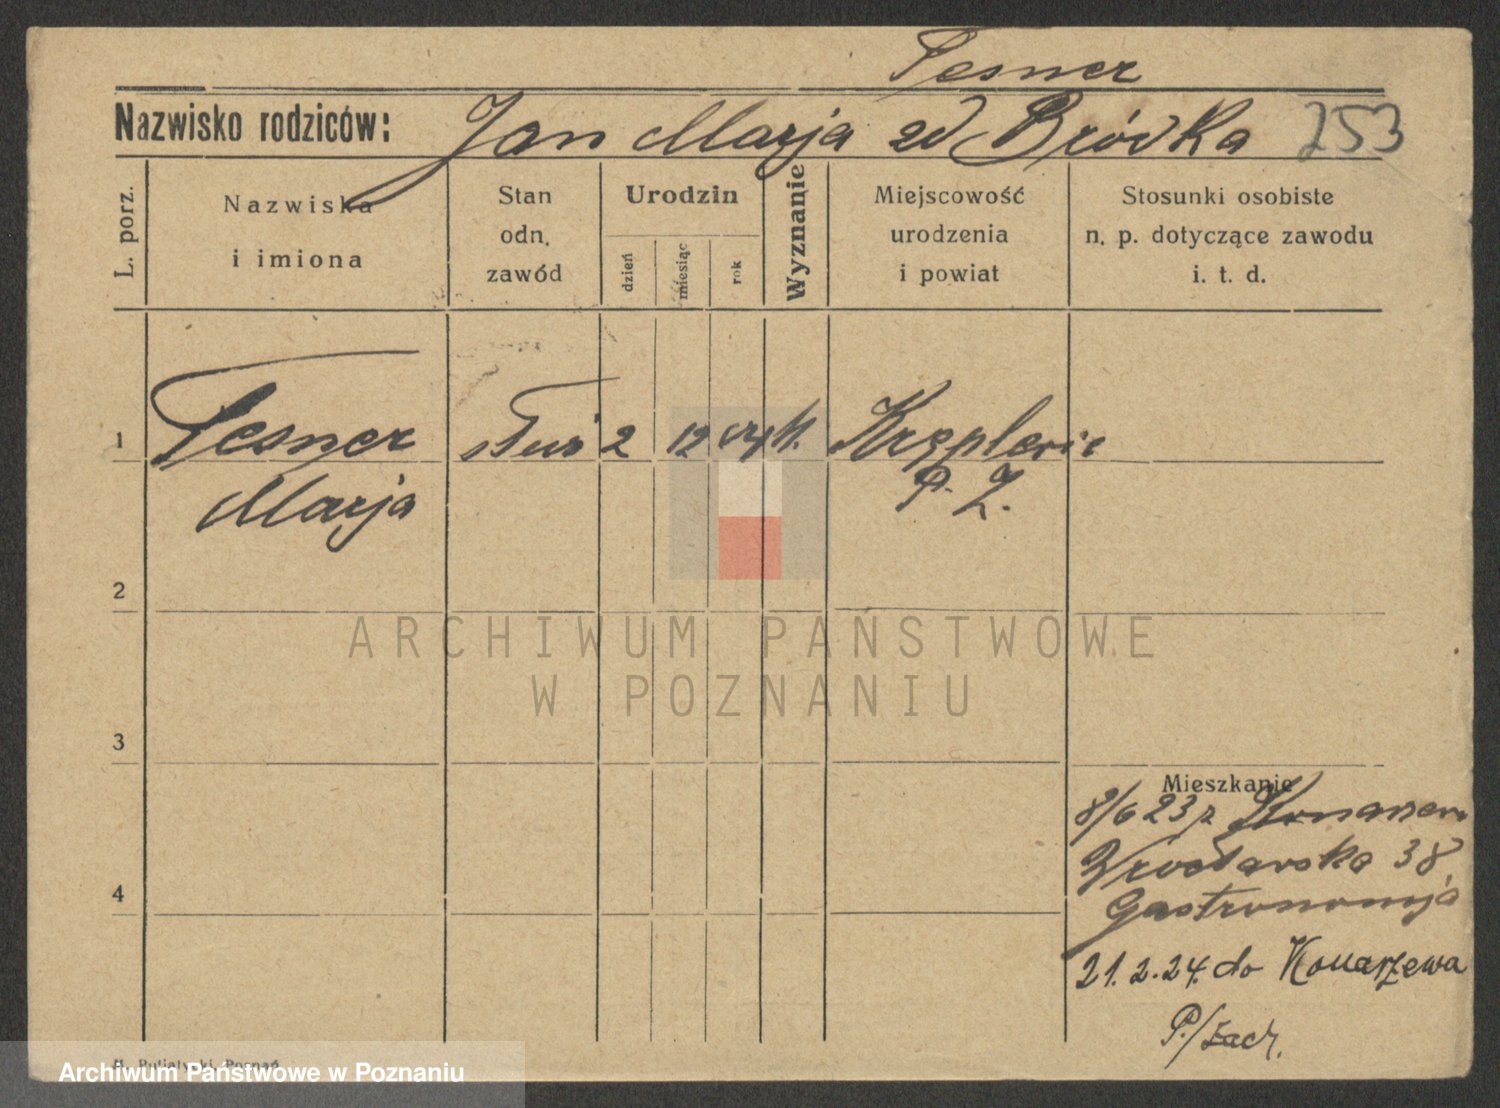 Tesner
Nazwisko rodziców: Jan Marja zd Bródka 253
L. porz.
Nazwiska
i imiona
Stan
odn.
zawód
Urodzin
dzień
miesiąc
rok
Wyznanie
Miejscowość
urodzenia
i powiat
Stosunki osobiste
n. p. dotyczące zawodu
i. t. d.
1 Tesner 2 12 k.
Marja
P. Z.
2
3
4
Mieszkanie
8/6 23 z
Wrocławska 38
Gastronomja
21.2.24. do Konarzewa
P./zach.
Poznań
ARCHIWUM PAŃSTWOWE
W POZNANIU
Archiwum Państwowe w Poznaniu